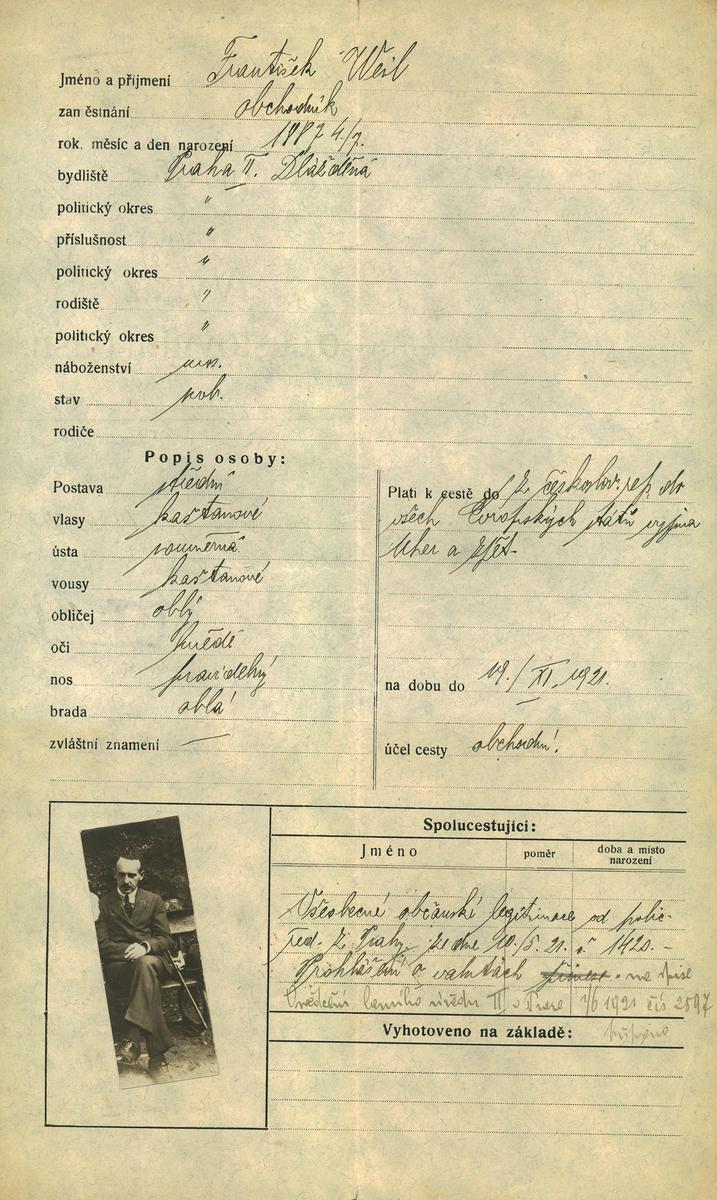 Jméno a příjmení František Weil
zaměstnání obchodník
rok, měsíc a den narození 1887 4/7.
bydliště Praha II. Dlážděná
politický okres "
příslušnost "
politický okres "
rodiště "
politický okres "
náboženství
stav
rodiče
Popis osoby:
Postava střední
vlasy kaštanové
ústa souměrná
vousy kaštanové
obličej oblý
oči hnědé
nos pravidelný
brada oblá
zvláštní znamení —
Platí k cestě do z českoslov. rep. do
všech Evropských států vyjma
Uher a zpět.
na dobu do 19./XI. 1921.
účel cesty obchodní.
Spolucestující:
Jméno poměr doba a místo
narození
Všeobecné občanské legitimace od polic.
řed. z Prahy ze dne 10./5. 21. č. 1420. –
Prohlášení o valutách na spise
úřadu II v Praze 7/6 1921 čís. 2897
Vyhotoveno na základě: